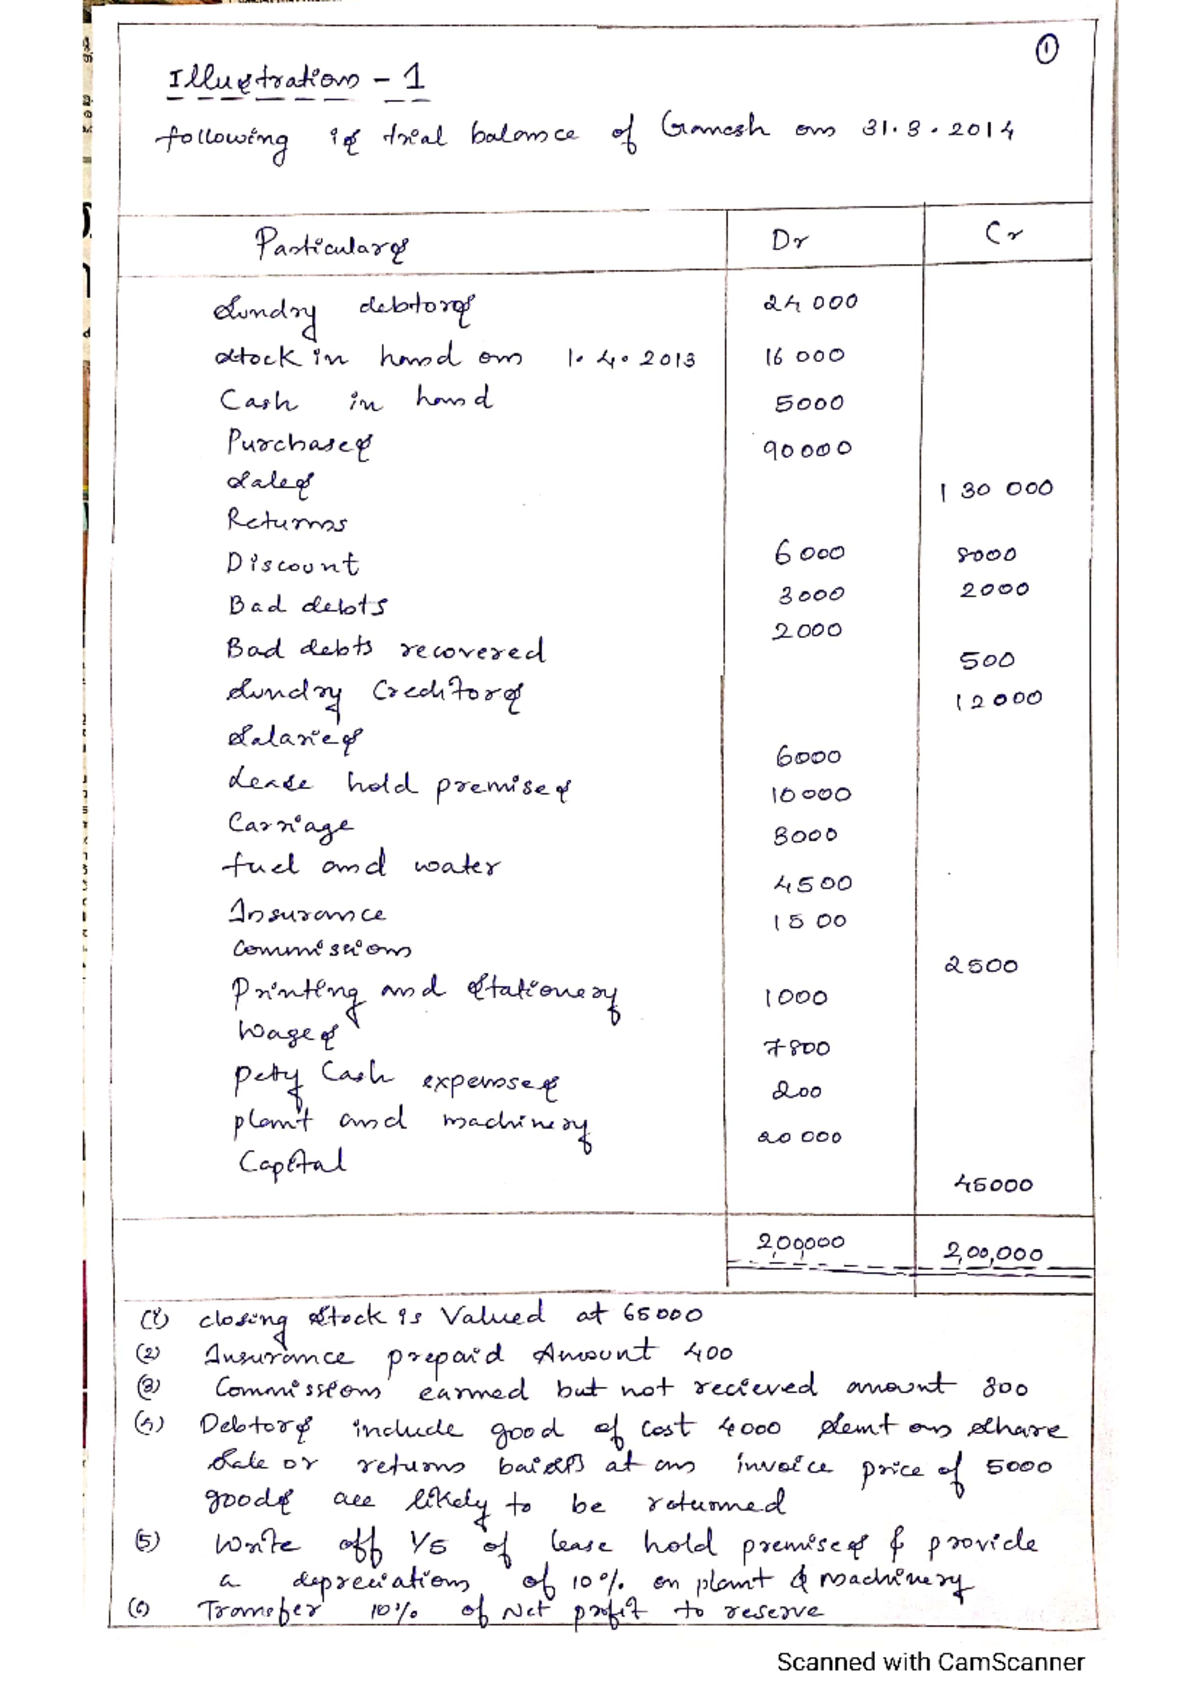 ①
Illustration - 1
following is trial balance of Ganesh on 31.3.2014
Particulars Dr Cr
Sundry debtors 24 000
Stock in hand on 1.4.2013 16 000
Cash in hand 5000
Purchases 90000
Sales 1 30 000
Returns 6000 8000
Discount 3000 2000
Bad debts 2000
Bad debts recovered 500
Sundry Creditors 12000
Salaries 6000
Lease hold premises 10000
Carriage 3000
fuel and water 4500
Insurance 1500
Commission 2500
Printing and Stationery 1000
Wages 7800
Petty Cash expenses 200
plant and machinery 20 000
Capital 45000
2,00,000 2,00,000
(1) closing Stock is Valued at 65000
(2) Insurance prepaid Amount 400
(3) Commission earned but not recieved amount 300
(4) Debtors include good of cost 4000 Sent on Share
Sale or returns at an invoice price of 5000
goods are likely to be returned
(5) Write off 1/5 of lease hold premises & provide
a depreciation of 10% on plant & machinery
(6) Transfer 10% of Net profit to reserve
Scanned with CamScanner